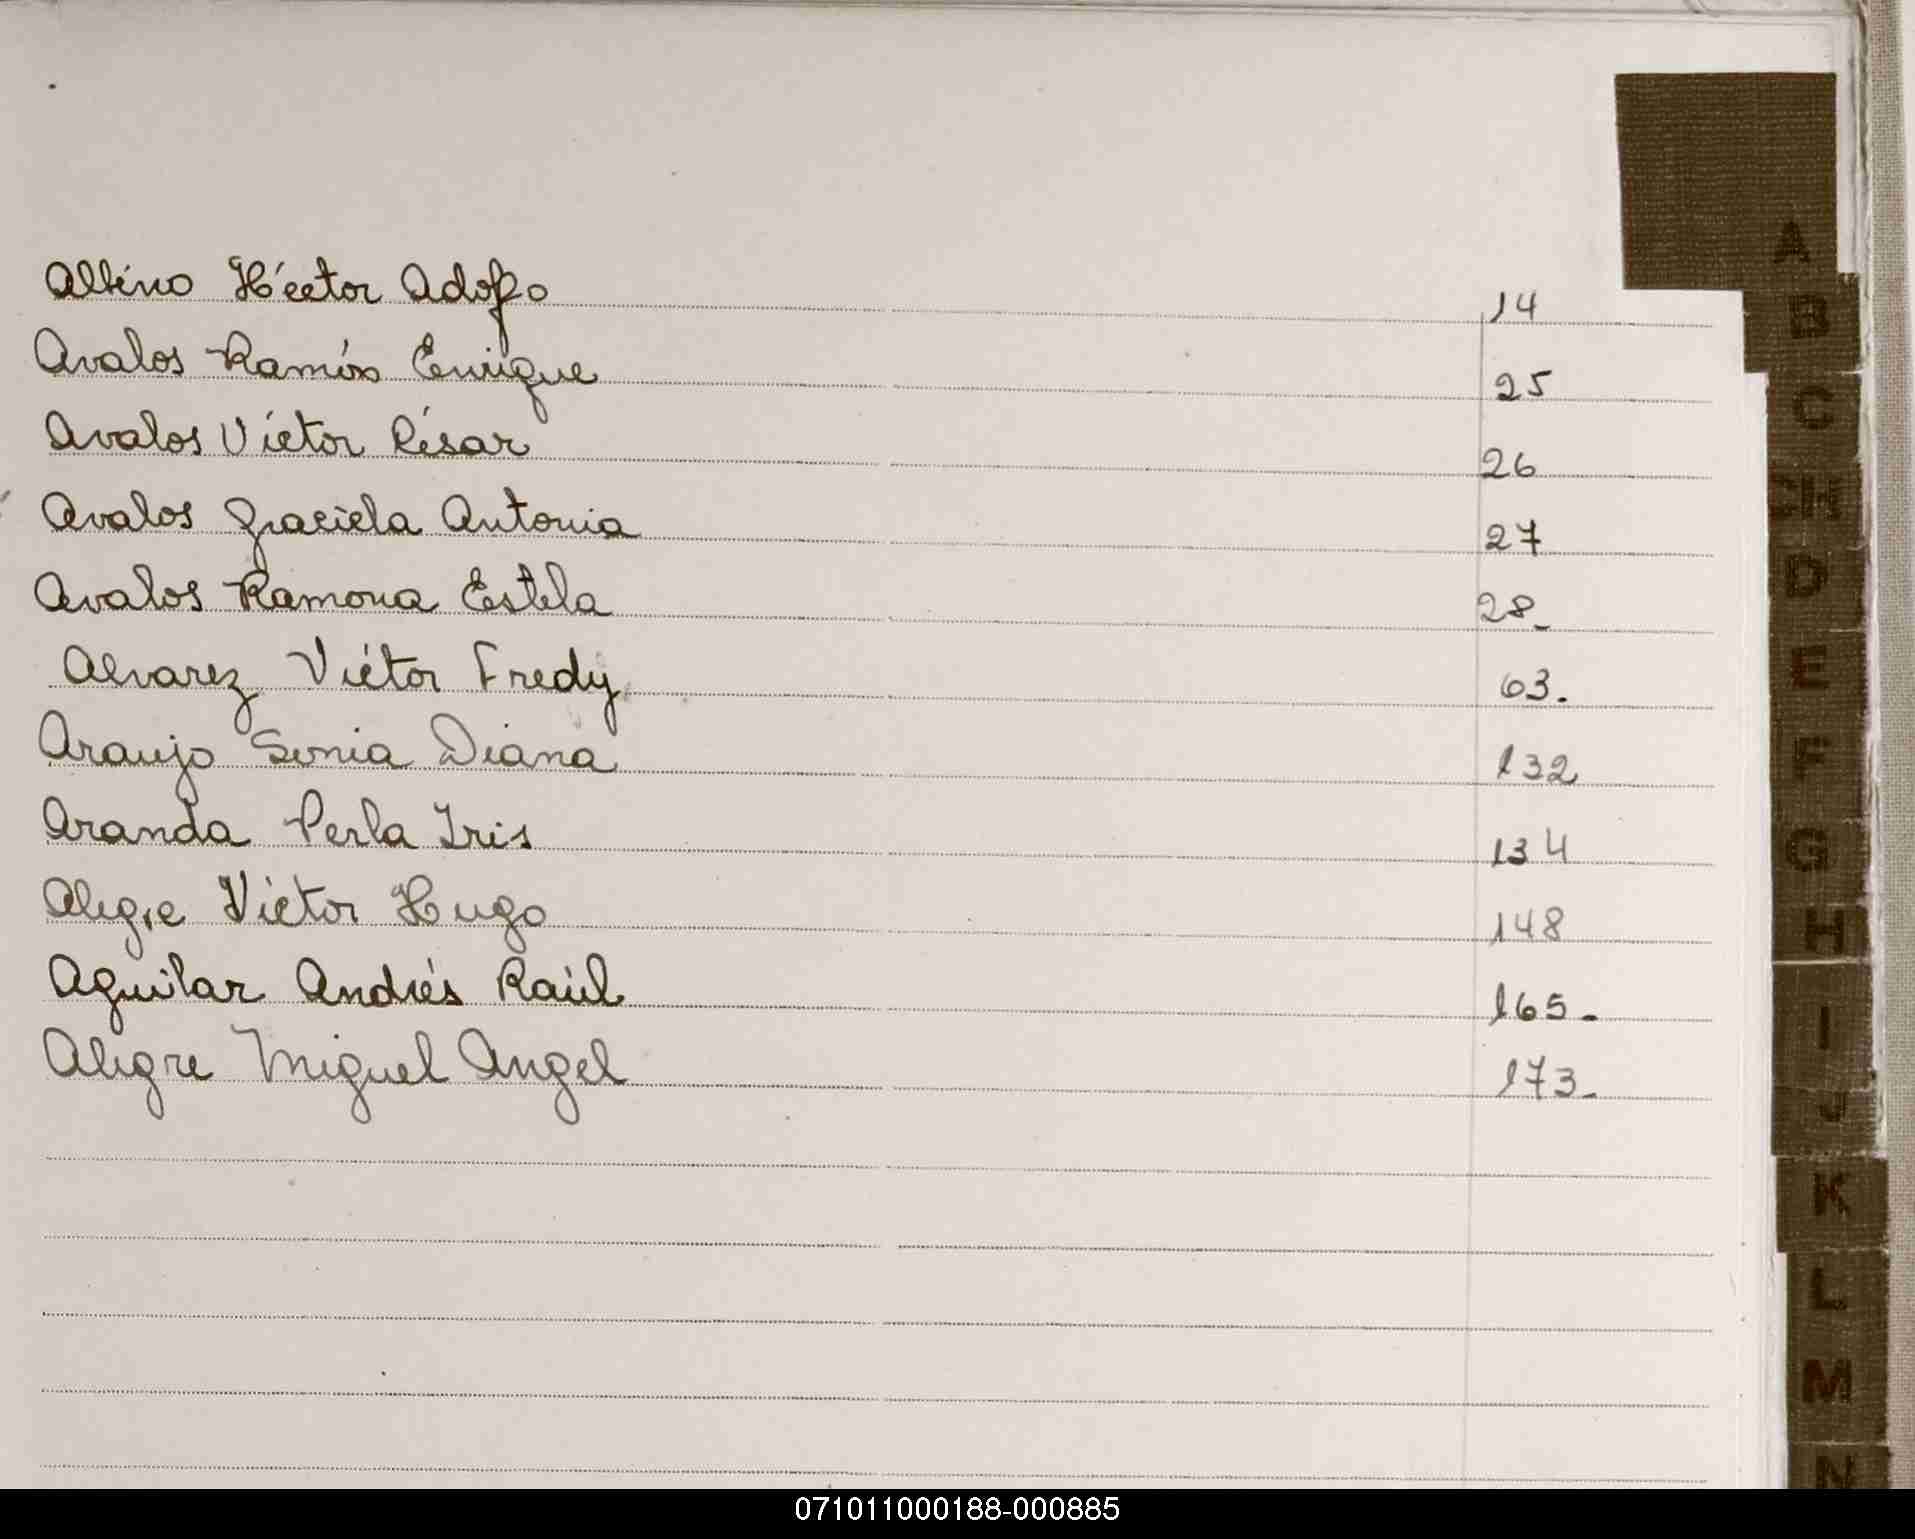 Albino Héctor Adolfo 14
Avalos Ramón Enrique 25
Avalos Víctor César 26
Avalos Graciela Antonia 27
Avalos Ramona Estela 28_
Alvarez Víctor Fredy 63.
Araujo Sonia Diana 132
Aranda Perla Iris 134
Alegre Víctor Hugo 148
Aguilar Andrés Raúl 165_
Alegre Miguel Angel 173_
A
B
C
CH
D
E
F
G
H
I
J
K
L
M
N
071011000188-000885